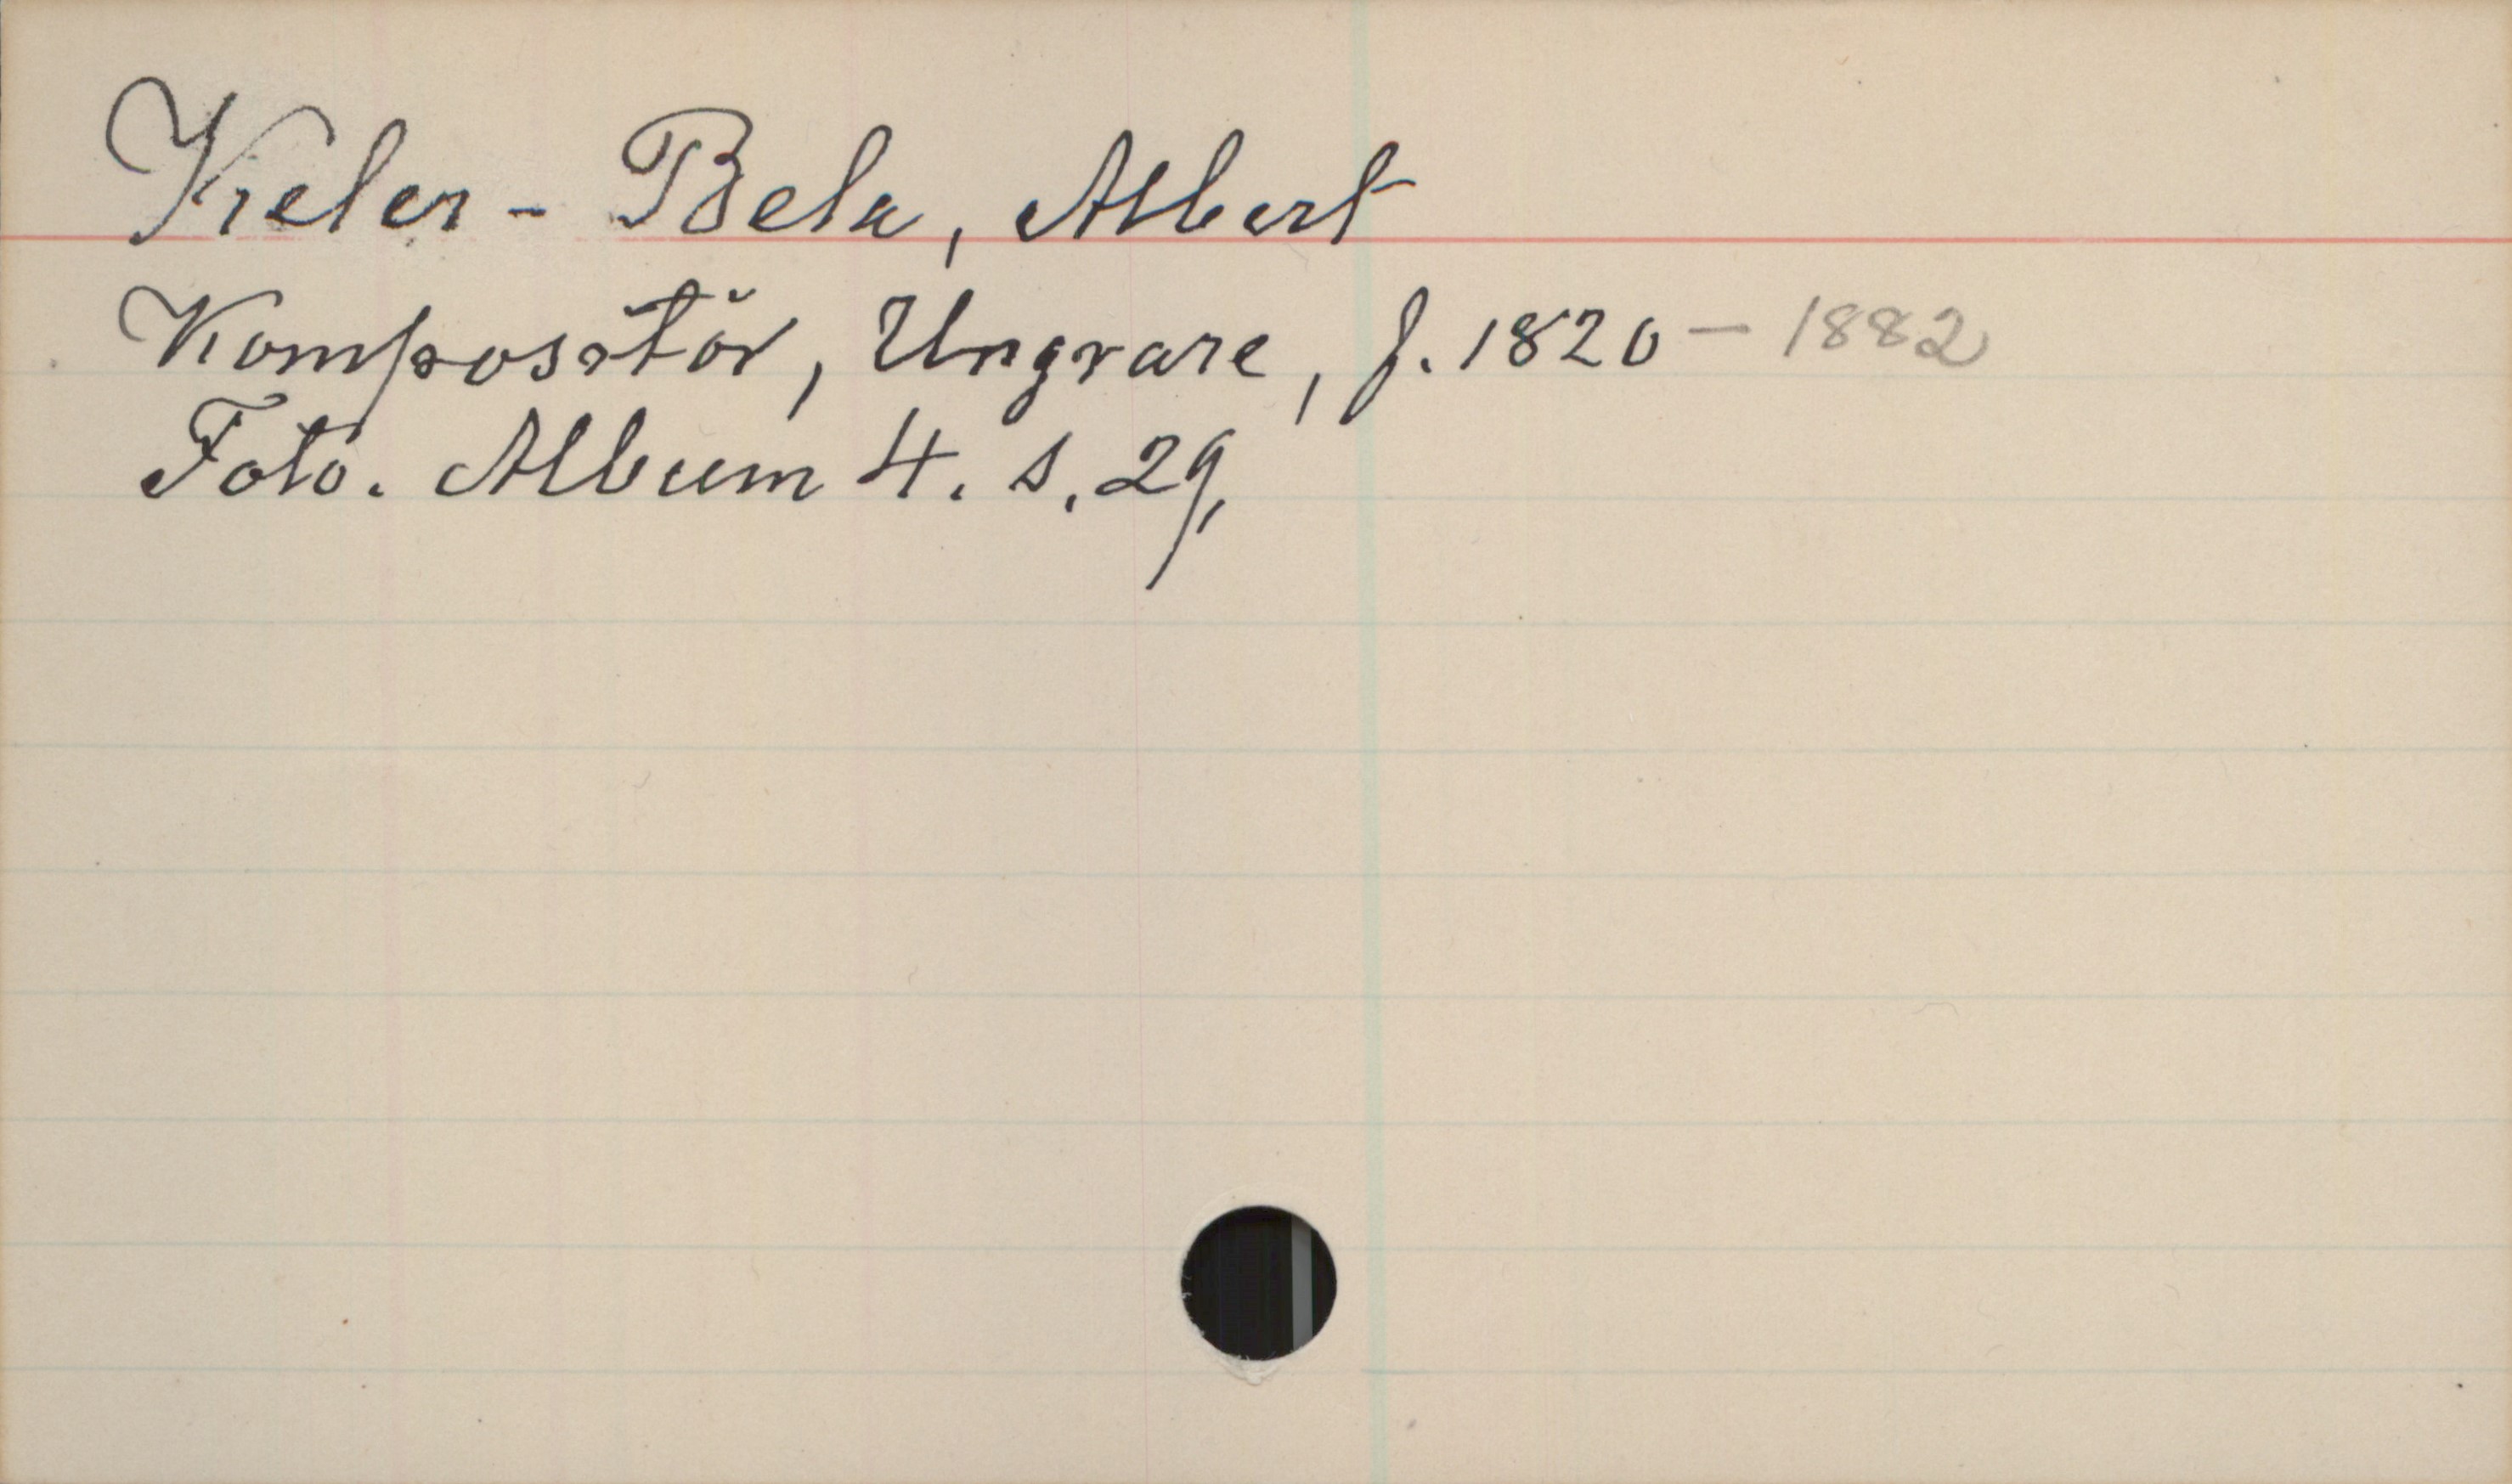 Keler - Bela, Albert
Kompositör, Ungrare, f. 1820 - 1882
Foto. Album 4. s. 29,